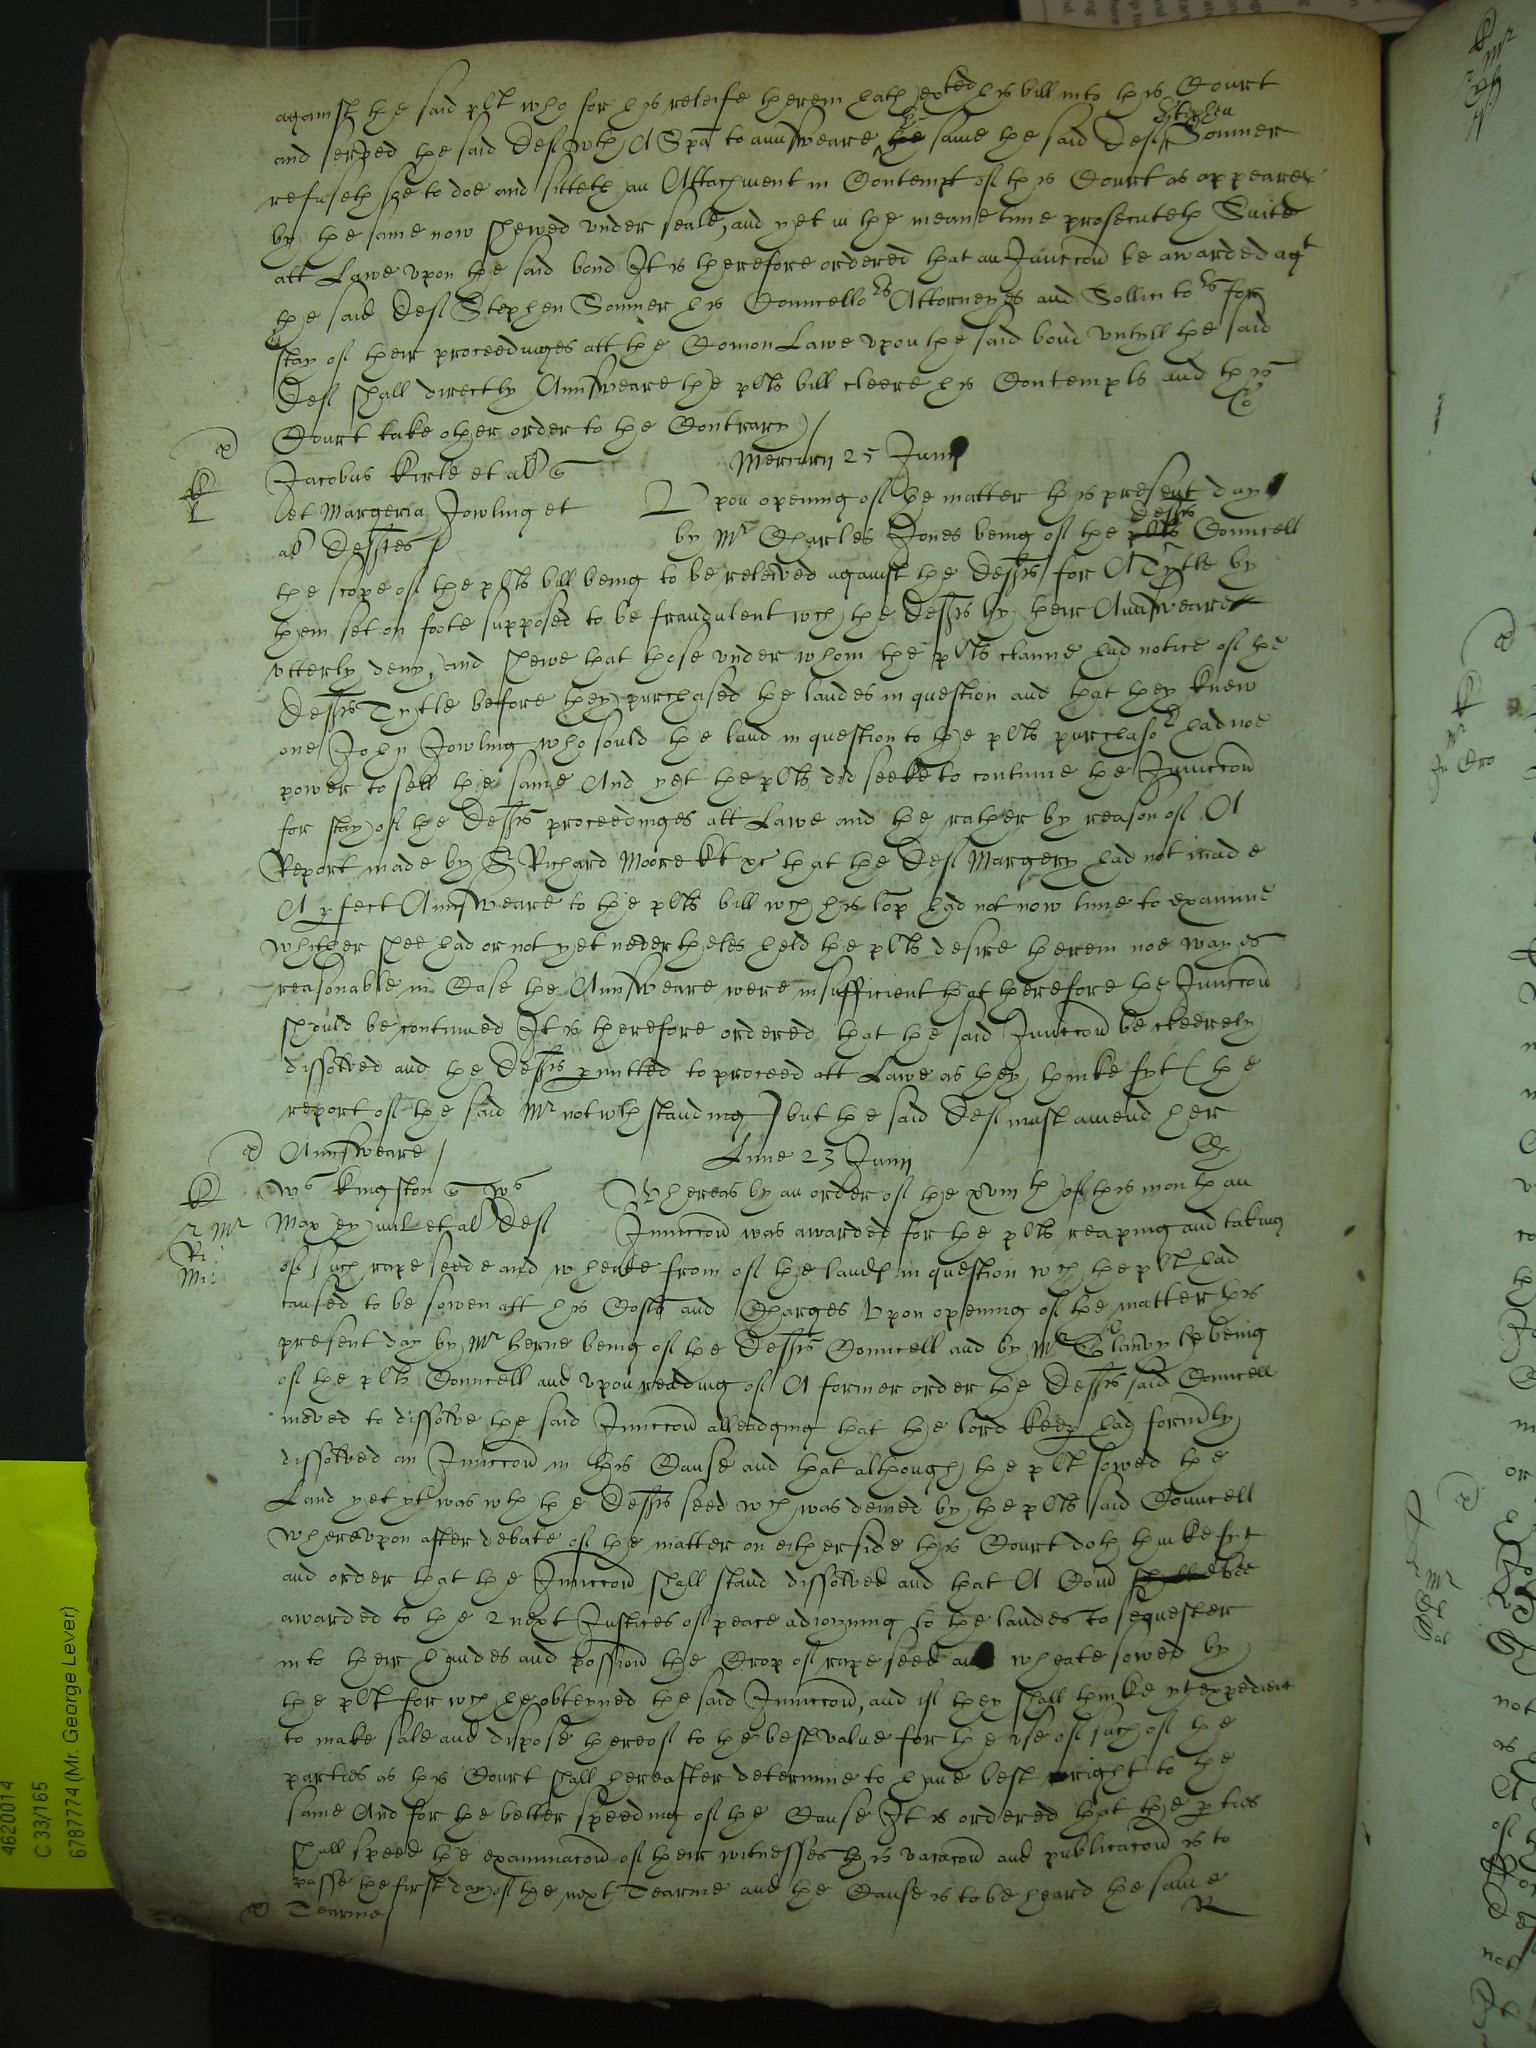 against the said plt who for his releife therein hath exted his bill into this Court
and served the said Deft wth A Spa to aunsweare the same the said Deft Stephen Sonner
refuseth soe to doe and sitteth an Attachment in Contempt of this Court as appeareth
by the same now shewed vnder seale, and yet in the meane time prosecuteth Suite
att Lawe vpon the said bond It is therefore ordered that an Iniuccon be awarded agt
the said Deft Stephen Sonner his Councellors Attorneyes and Sollicitors for
stay of their proceedinges att the Comon Lawe vpon the said bond vntyll the said
Deft shall directly Aunsweare the plts bill cleere his Contempts and this
Court take other order to the Contrary /
Co
Mercurij 25 Junij
Jacobus Kirle et al
K
Vpon opening of the matter this present day
et Margeria Jowling et
al Deftes
by Mr Charles Jones being of the plts defts Councell
the scope of the plts bill being to be releived against the Defts for A Tytle by
them set on foote supposed to be fraudulent wch the Defts by their Aunsweare
vtterly deny, and shewe that those vnder whom the plts clayme had notice of the
Defts Tytle before they purchased the landes in question and that they knew
one John Jowling who sould the land in question to the plts purchasor had noe
power to sell the same And yet the plts did seeke to contynue the Iniuccon
for stay of the Defts proceedinges att Lawe and the rather by reason of A
Report made by Sr Richard Moore kt &c that the Deft Margery had not made
A pfect Aunsweare to the plts bill wch his lop had not now time to examine
whither shee had or not yet nevertheles held the plts desire therein noe wayes
reasonable in Case the Aunsweare were insufficient that therefore the Iniuccon
should be continued It is therefore ordered that the said Iniuccon be cleerely
dissolved and the Defts pmitted to proceed att Lawe as they thinke fyt (the
report of the said Mr notwthstanding) but the said Deft must amend her
Aunsweare /
Lune 23 Junij
K
Ws Kingston Ws
Whereas by an order of the xviiith of this month an
2 Mr
Ri:
Mi:
et al Deft
Iniuccon was awarded for the plts reaping and taking
of such rape seede and wheate from of the landes in question wch the plt had
caused to be sowen att his Costs and Charges Vpon opening of the matter this
present day by Mr herne being of the Defts Councell and by Mr Glanvyle being
of the plts Councell and vpon reading of A former order the Defts said Councell
moved to dissolve the said Iniuccon alleadging that the lord keep had formerly
dissolved an Iniuccon in this Cause and that although the plt sowed the
Land yet yt was wth the Defts seed wch was denied by the plts said Councell
Wherevpon after debate of the matter on either side this Court doth thinke fyt
and order that the Iniuccon shall stand dissolved and that A Comn shall bee
awarded to the 2 next Justices of peace adioyning to the landes to sequester
into their handes and possion the Crop of rape seed and wheate sowed by
the plt for wch he obteyned the said Iniuccon, and if they shall thinke yt expedient
to make sale and dispose thereof to the best value for the vse of such of the
parties as this Court shall hereafter determine to have best right to the
same And for the better speeding of the Cause It is ordered that the pties
shall speed the examinacon of their witnesses this vacacon and publicacon is to
passe the first day of the next Tearme and the Cause is to be heard the same
Tearme
R
4620014
C 33/165
6787774 (Mr. George Lever)